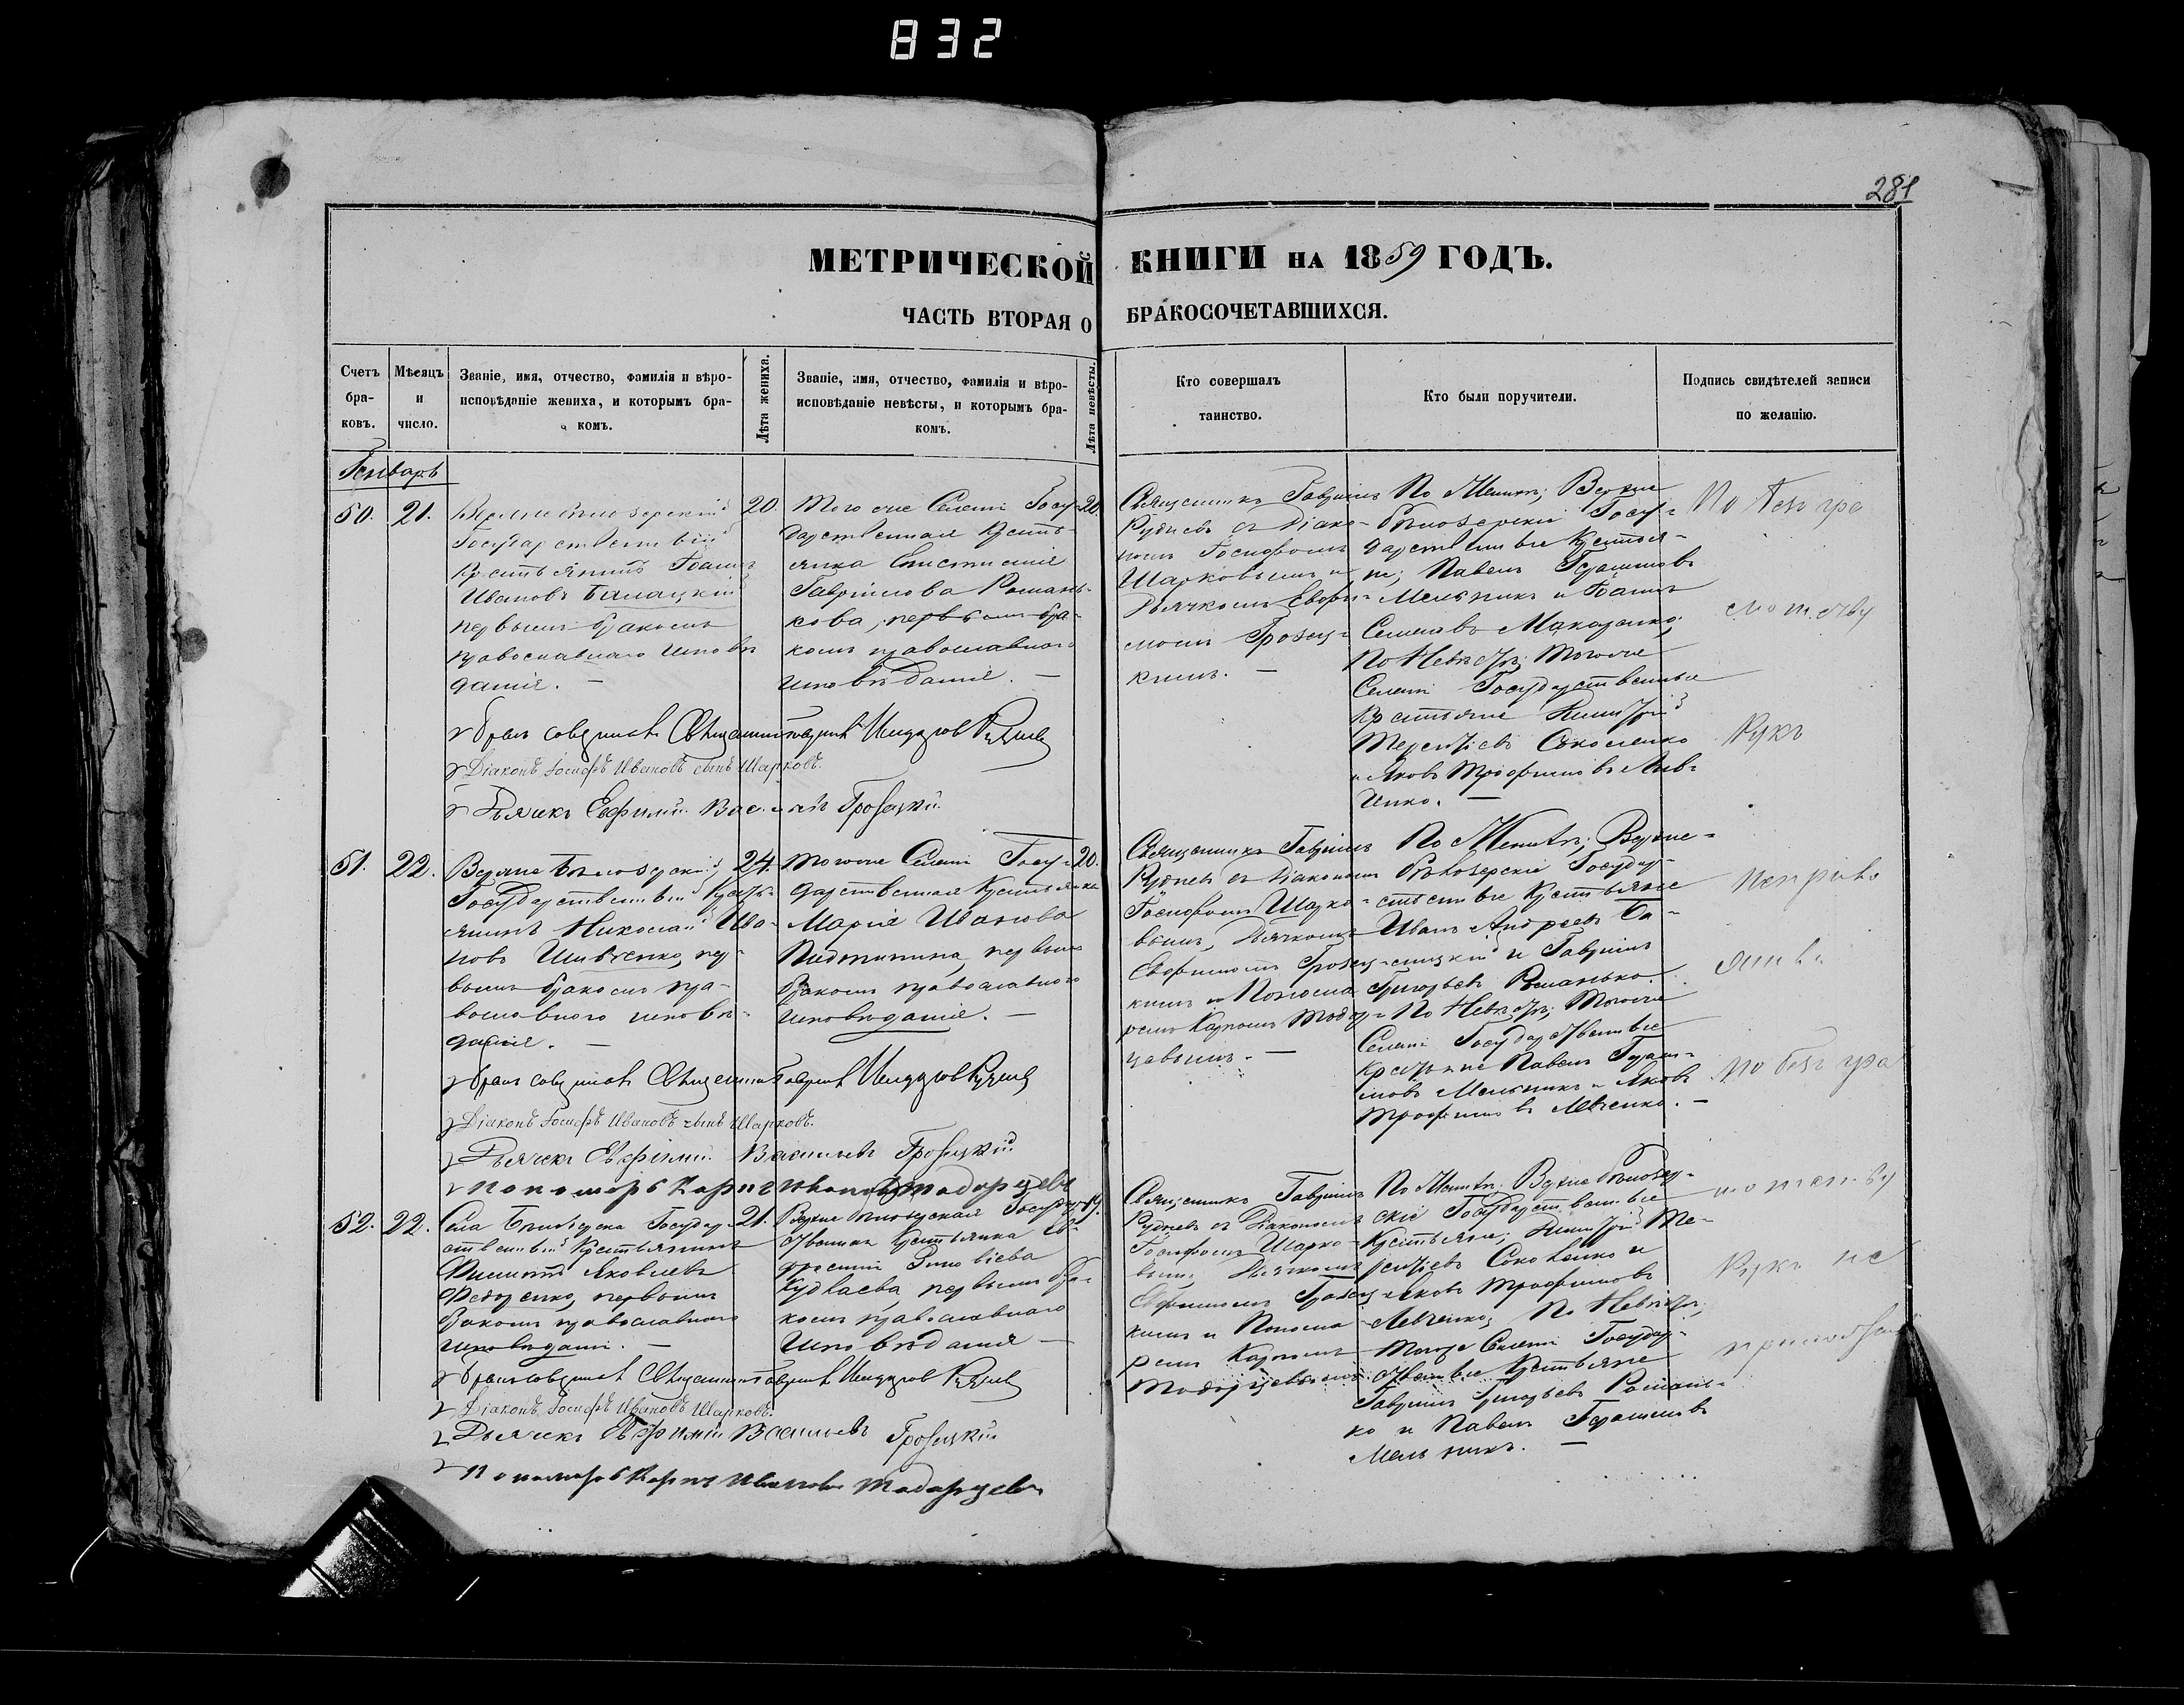 832
281
МЕТРИЧЕСКОЙ КНИГИ НА 1859 ГОДЪ.
ЧАСТЬ ВТОРАЯ О БРАКОСОЧЕТАВШИХСЯ.
Счетъ бра- ковъ.
Мѣсяцъ и число.
Званіе, имя, отчество, фамилія и вѣро-
исповѣданіе жениха, и которымъ бра-
комъ.
Лѣта жениха.
Званіе, имя, отчество, фамилія и вѣро-
исповѣданіе невѣсты, и которымъ бра-
комъ.
Лѣта невѣсты.
Кто совершалъ
таинство.
Кто были поручители.
Подпись свидѣтелей записи
по желанію.
Генварь
50. 21.
Верхнебѣлозерскій
Государственный
крестьянинъ Іоаннъ
Ивановъ
первымъ бракомъ
православнаго исповѣ
данія. —
20.
Того же Селенія Госу-
дарственная Кресть-
янка
Гавриилова Романь-
кова, первымъ бра-
комъ православнаго
исповѣданія. —
20.
Священникъ Гавріилъ
Рудневъ съ Діако-
номъ Іосифомъ
Шарковымъ и
Дьячкомъ Евфи-
міемъ Грозиц-
кимъ. —
По Женихѣ; Верхне
бѣлозерскіе Госу-
дарственные Крестья-
не; Павелъ Герасимовъ
Мельникъ и Іоаннъ
Семеновъ Макаренко;
По Невѣстѣ; Тогоже
Селенія Государственные
Крестьяне Димитрій
Терентіевъ Соколенко
и Яковъ Трофимовъ Лев-
ченко. —
По безъ гра
мотству
Рукъ
Бракъ совершилъ Священникъ Гавріилъ Рудневъ
Діаконъ Іосифъ Ивановъ сынъ Шарковъ.
Дьячекъ Евфимій Васильевъ Грозицкій
51. 22.
Верхне Бѣлозерскій
Государственный Кресть-
янинъ Николай Ива-
новъ Шевченко, пер-
вымъ бракомъ пра-
вославного исповѣ-
данія. —
24.
Тогоже Селенія Госу-
дарственная Крестьянка
Марія Иванова
первымъ
бракомъ православного
исповѣданія. —
20.
Священникъ Гавріилъ
Рудневъ съ Діакономъ
Іосифомъ Шарко-
вымъ, Дьячкомъ
Евфиміемъ Грозиц-
кимъ и Понома-
ремъ Карпомъ Тодор-
цевымъ. —
По Женихѣ; Верхне-
бѣлозерскіе Государ-
ственные Крестьяне
Иванъ Андреевъ
и Гавріилъ
Григорьевъ Романько.
По Невѣстѣ; Тогоже
Селенія Государственные
Крестьяне Павелъ Гераси-
мовъ Мельникъ и Яковъ
Трофимовъ Левченко. —
по безъ гра
Бракъ совершилъ Священникъ Гавріилъ Рудневъ
Діаконъ Іосифъ Ивановъ сынъ Шарковъ.
Дьячекъ Евфимій Васильевъ Грозицкій
Пономарь Карпъ Ивановъ Тодорцевъ
52. 22.
Села Бѣлозерска Государ-
ственный Крестьянинъ
Филиппъ Яковлевъ
Федоренко, первымъ
бракомъ православнаго
исповѣданія. —
21.
Верхне бѣлозерская Государ-
ственная Крестьянка Ев-
фросинія Зиновіева
первымъ бра-
комъ православнаго
исповѣданія —
19.
Священникъ Гавріилъ
Рудневъ съ Діакономъ
Іосифомъ Шарко-
вымъ, Дьячкомъ
Евфиміемъ Грозиц-
кимъ и Понома-
ремъ Карпомъ
Тодорцевымъ.
По Женихѣ; Верхне бѣлозер-
скіе Государственные
Крестьяне; Димитрій Те-
рентіевъ Соколенко и
Яковъ Трофимовъ
Левченко; По Невѣстѣ;
Тогоже Селенія Государ-
ственные Крестьяне
Гавріилъ Григорьевъ Романь-
ко и Павелъ Герасимовъ
Мельникъ. —
мотству
Рукъ не
приложили
Бракъ совершилъ Священникъ Гавріилъ Рудневъ
Діаконъ Іосифъ Ивановъ Шарковъ.
Дьячекъ Евфимій Васильевъ Грозицкій
Пономарь Карпъ Ивановъ Тодорцевъ